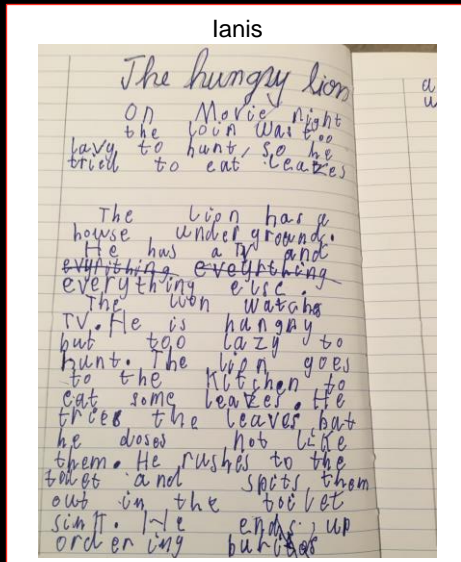 Ianis
The hungry lion
on Movie night
the loin was too
lavy to hunt, so he
tried to eat leazes
The lion has a
howse underground.
He has a TV and
evyrithing eveyrthing
everything else.
The lion watchs
TV. He is hangny
but too lazy to
hunt. The lion goes
to the kitchen to
eat some leazes. He
tries the leaves bat
he doses not like
them. He rushes to the
toilet and spits them
out in the toilet
He ends up
ordering buritos
a